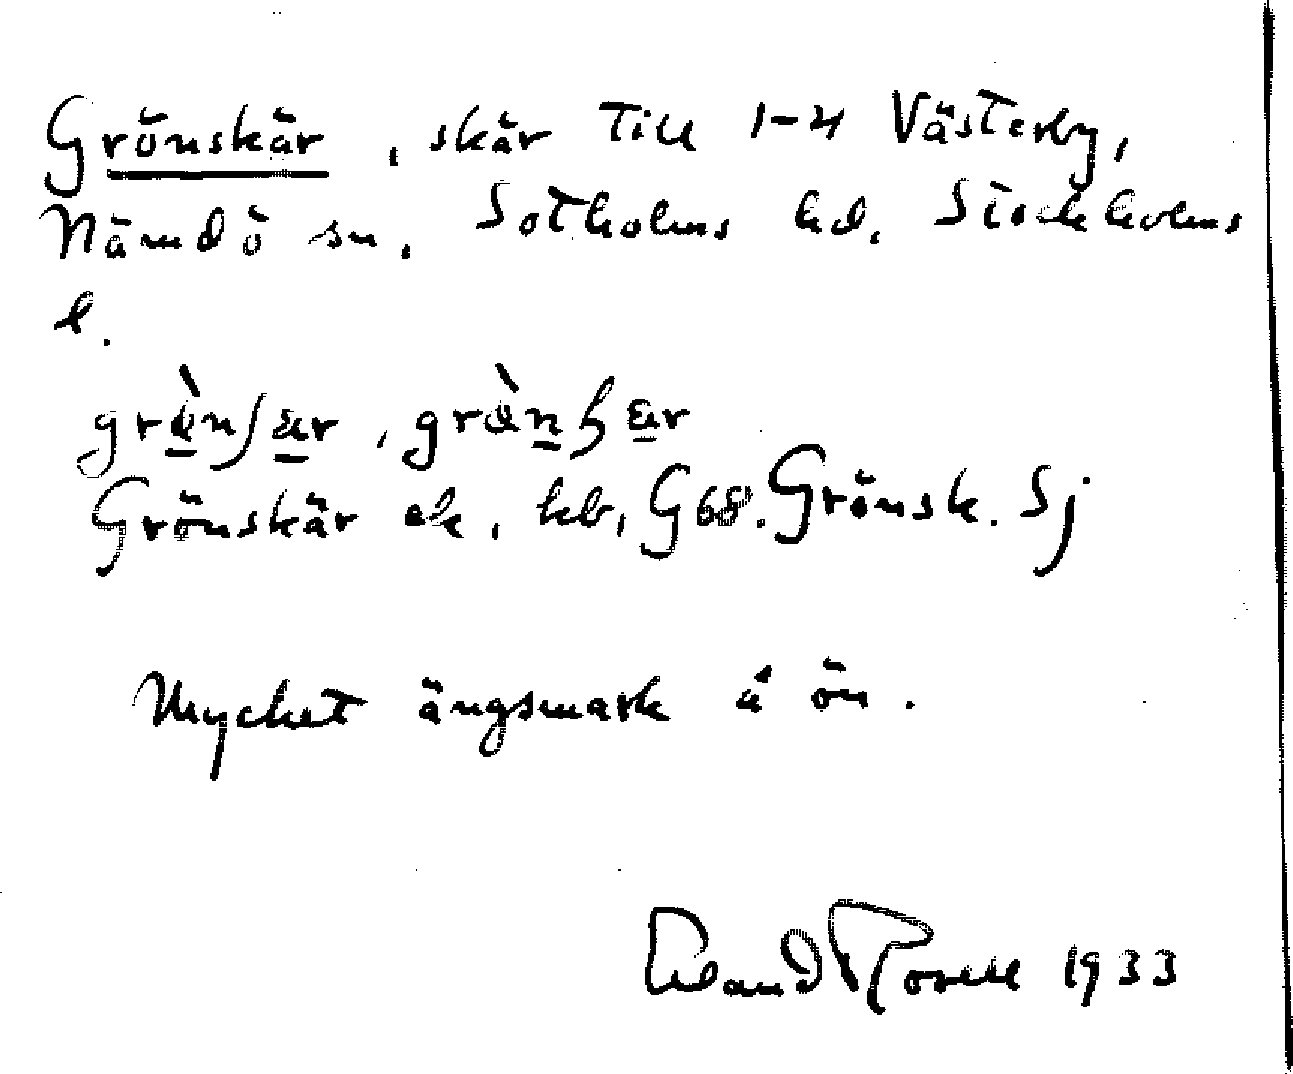 Grönskär, skär till 1-4 Västerby,
Nämdö sn, Sotholms hd, Stockholms
l.
Grönskär ek, hb, G68. Grönsk. Sj
Mycket ängsmark å ön.
Erland Rosell 1933